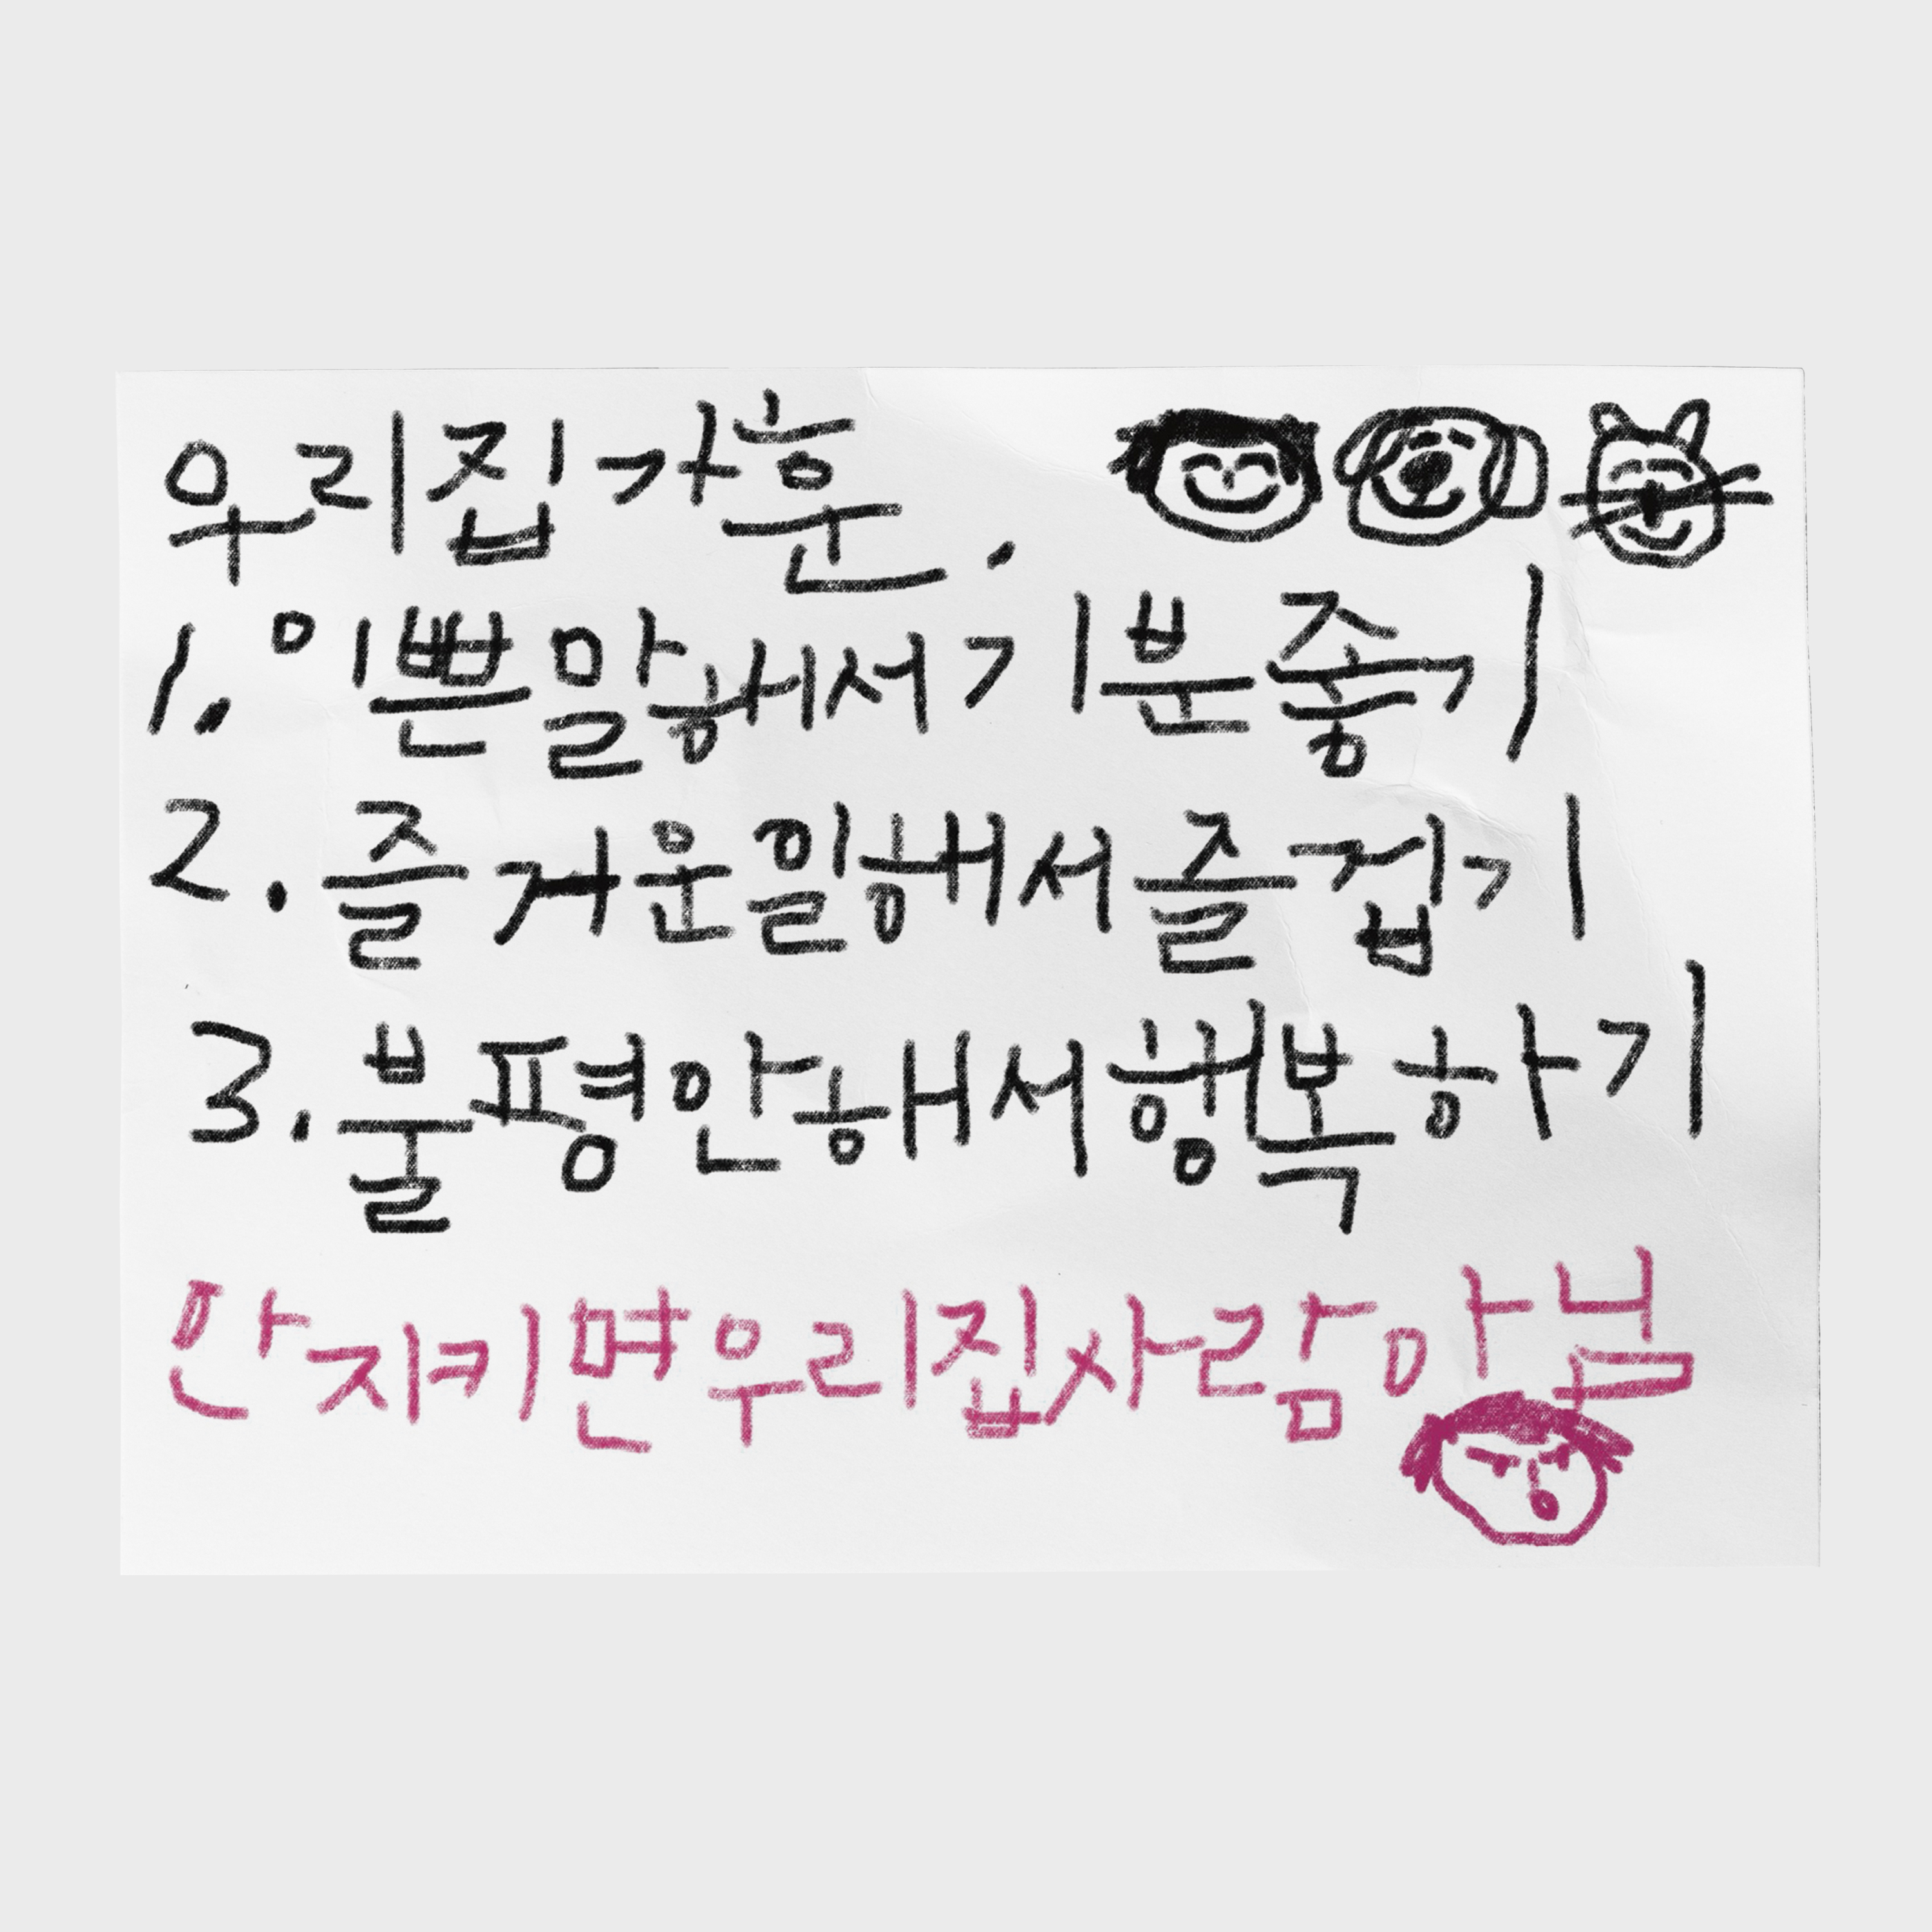 우리집가훈.
1. 이쁜말해서기분좋기
2. 즐거운일해서즐겁기
3. 불평안해서행복하기
안지키면우리집사람아님